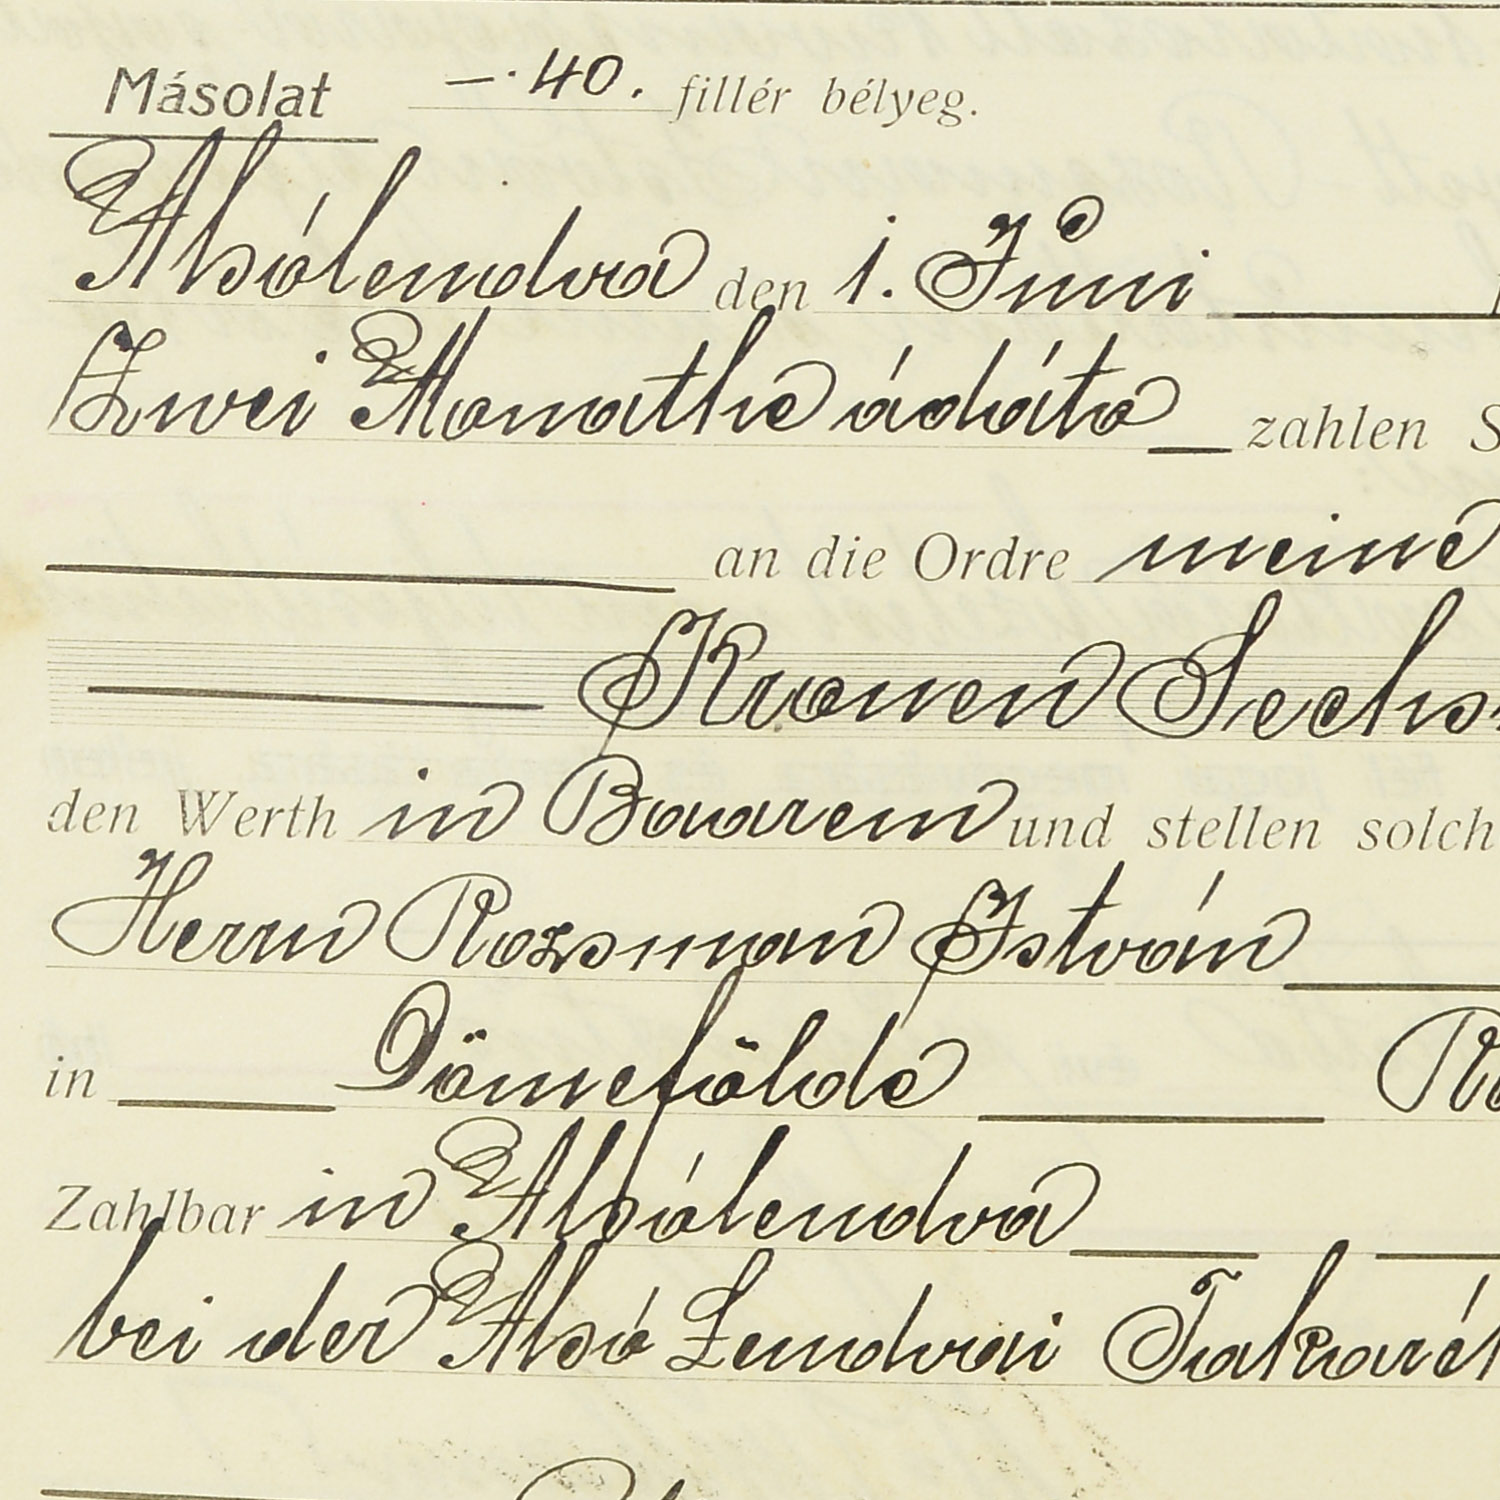 Másolat —.40. fillér bélyeg.
Alsólendva den 1. Juni
Zwei Monathe ádáto zahlen S
an die Ordre meine
Kronen Sechs
den Werth in Bauarem und stellen solch
Herrn Rozsman István
in Dömefölde
Zahlbar in Alsólendva
bei der Alsó Lendvai Takarék